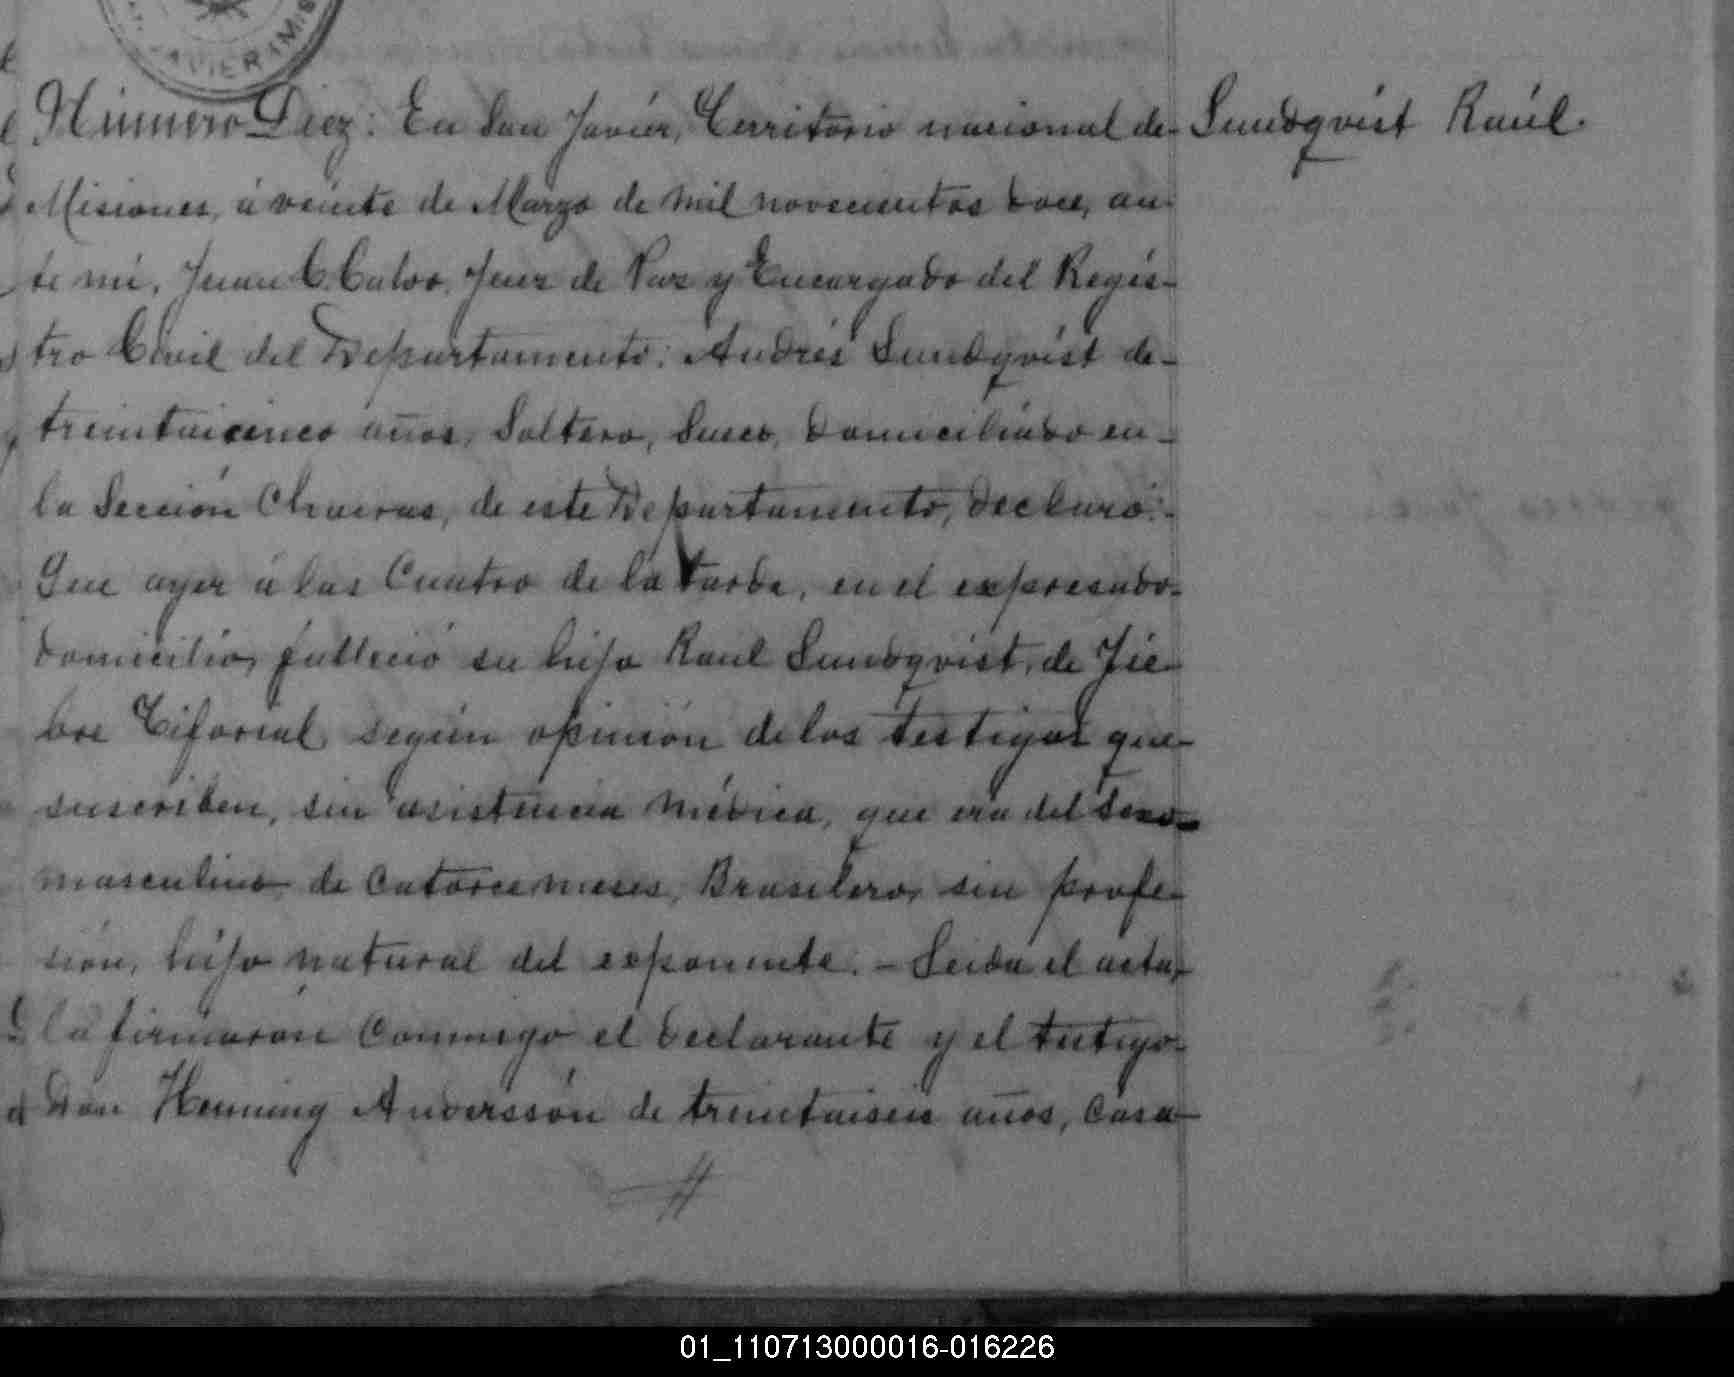 AVIER (MIS
Número Diez: En San Javiér, Territorio nacional de- Sundqvist Raúl.
Misiones, á veinte de Marzo de mil novecientos doce, an-
te mi, Juan C. Calvo, Juez de Paz y Encargado del Regis-
tro Civil del Departamento: Andrés Sundqvist de-
treintaicinco años, Soltero, Sueco, domiciliado en-
la Sección Chacras, de este Departamento, declaró:-
Que ayer á las Cuatro de la tarde, en el expresado-
domicilio, falleció su hijo Raul Sundqvist, de Fie-
bre Tifoidal según opinión de los testigos que-
suscriben, sin asistencia médica, que era del sexo-
masculino, de catorce meses, Brasilero, sin profe-
sión, hijo natural del exponente.- Leida el acta,-
la firmarón conmigo el declarante y el testigo-
Don Henning Anderssón de treintaiseis años, casa-
01_110713000016-016226